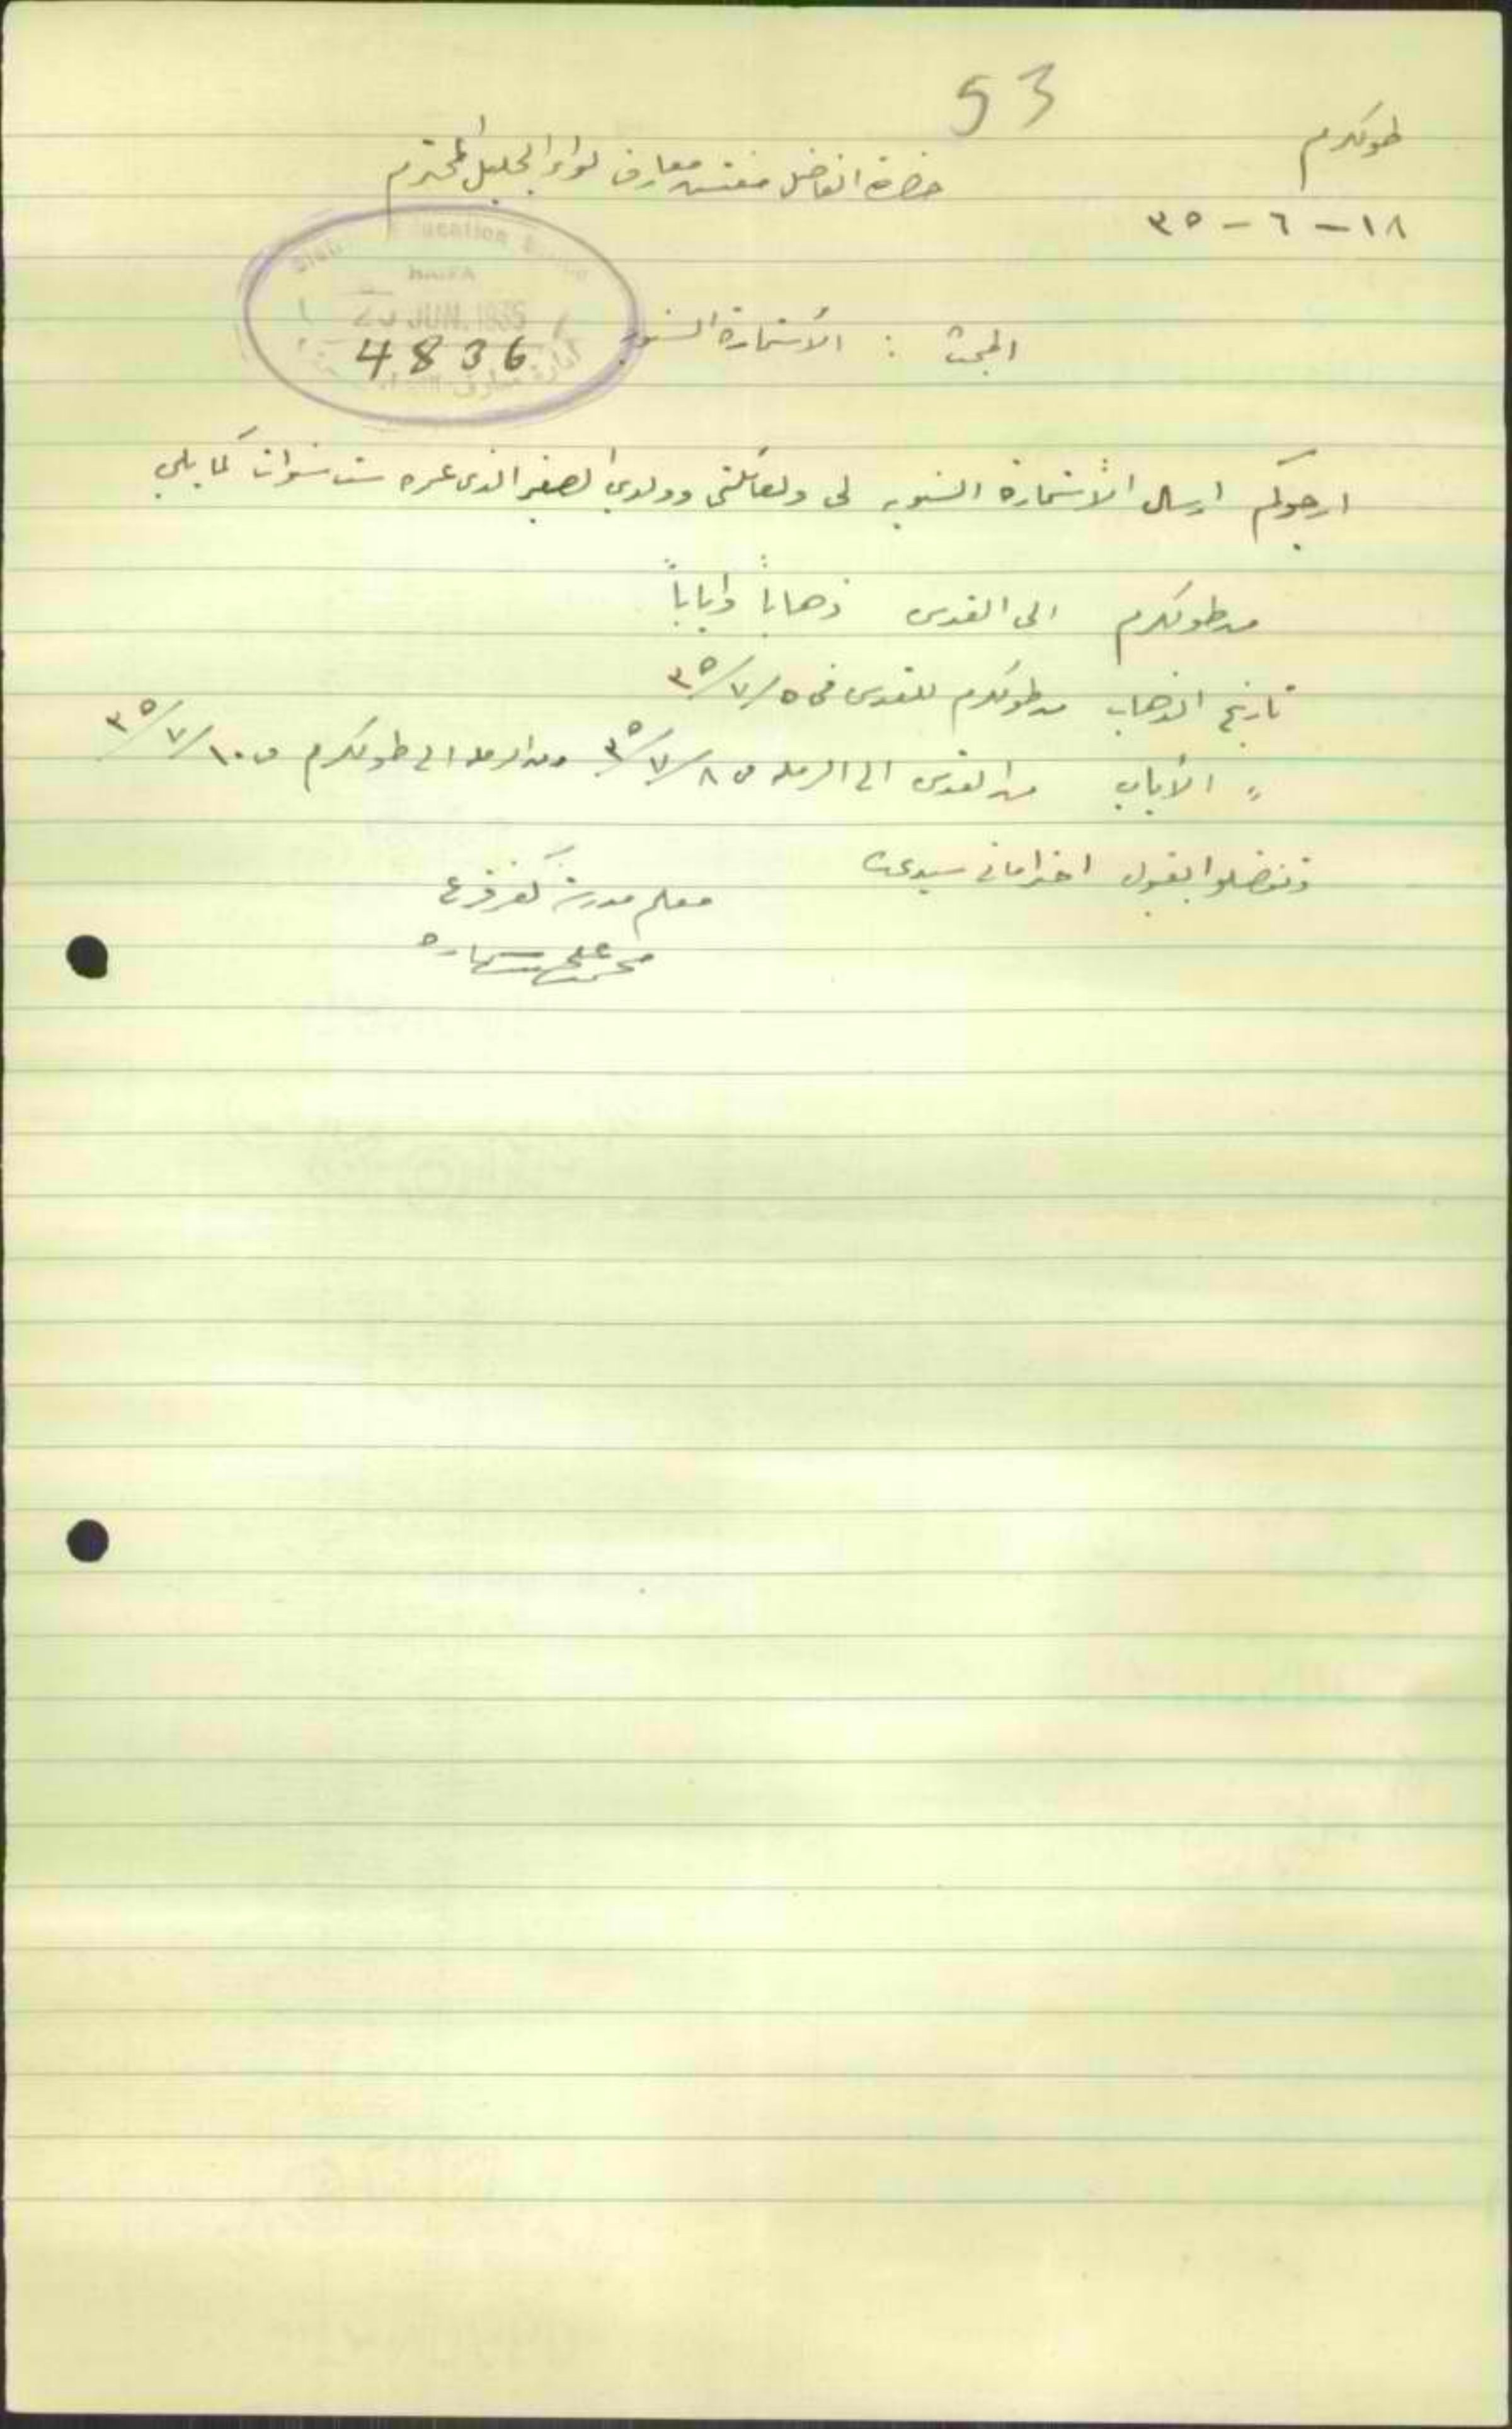 53
طولكرم
حضرة الفاضل مفتش معارف لواء الجليل المحترم
١٨ - ٦ - ٣٥
Education
HAIFA
20 JUN. 1935
4836
المبحث : الأستمارة السنويه
ارجوكم ارسال الأستمارة السنويه لي ولعائلتي وولدي الصغير الذي عمره ست سنوات كما يلي
من طولكرم الى القدس ذهاباً واياباً
تاريخ الذهاب من طولكرم للقدس في ٥/٧/٣٥
〃 الأياب من القدس الى الرمله في ٨/٧/٣٥ ومن الرمله الى طولكرم في ١٠/٧/٣٥
وتفضلوا بقبول احتراماتي سيدي
معلم مدرسة كفر قرع
محمد علي سماره